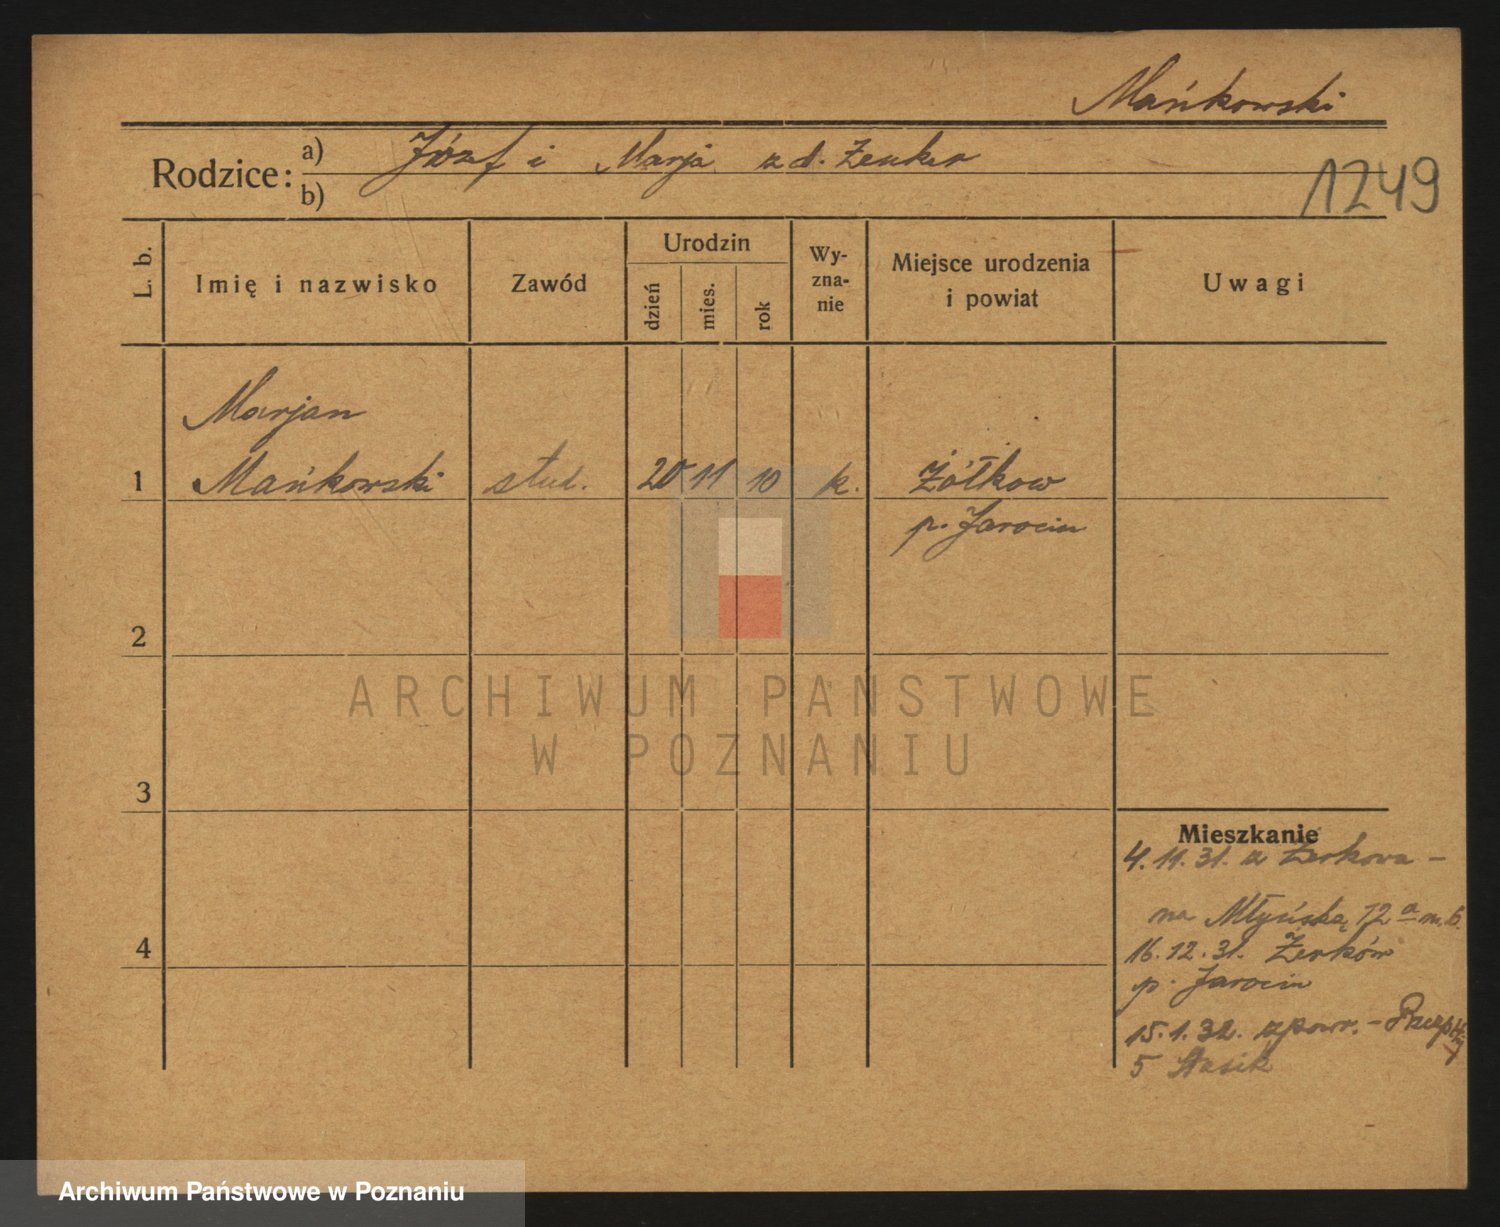 Mańkowski
Rodzice: a) Józef i Marja z d. Zenker
b)
1249
L. b.
Imię i nazwisko
Zawód
Urodzin
dzień
mies.
rok
Wy-
zna-
nie
Miejsce urodzenia
i powiat
Uwagi
Marjan
1 Mańkowski stud. 20 11 10 k. Żółkow
p. Jarocin
2
ARCHIWUM PAŃSTWOWE
W POZNANIU
3
Mieszkanie
4.11.31. z Żerkowa -
na Młyńską 12 a m. 6.
4
16.12.31. Żerków
p. Jarocin
15.1.32. zpowr. -
5 Stasik
Archiwum Państwowe w Poznaniu